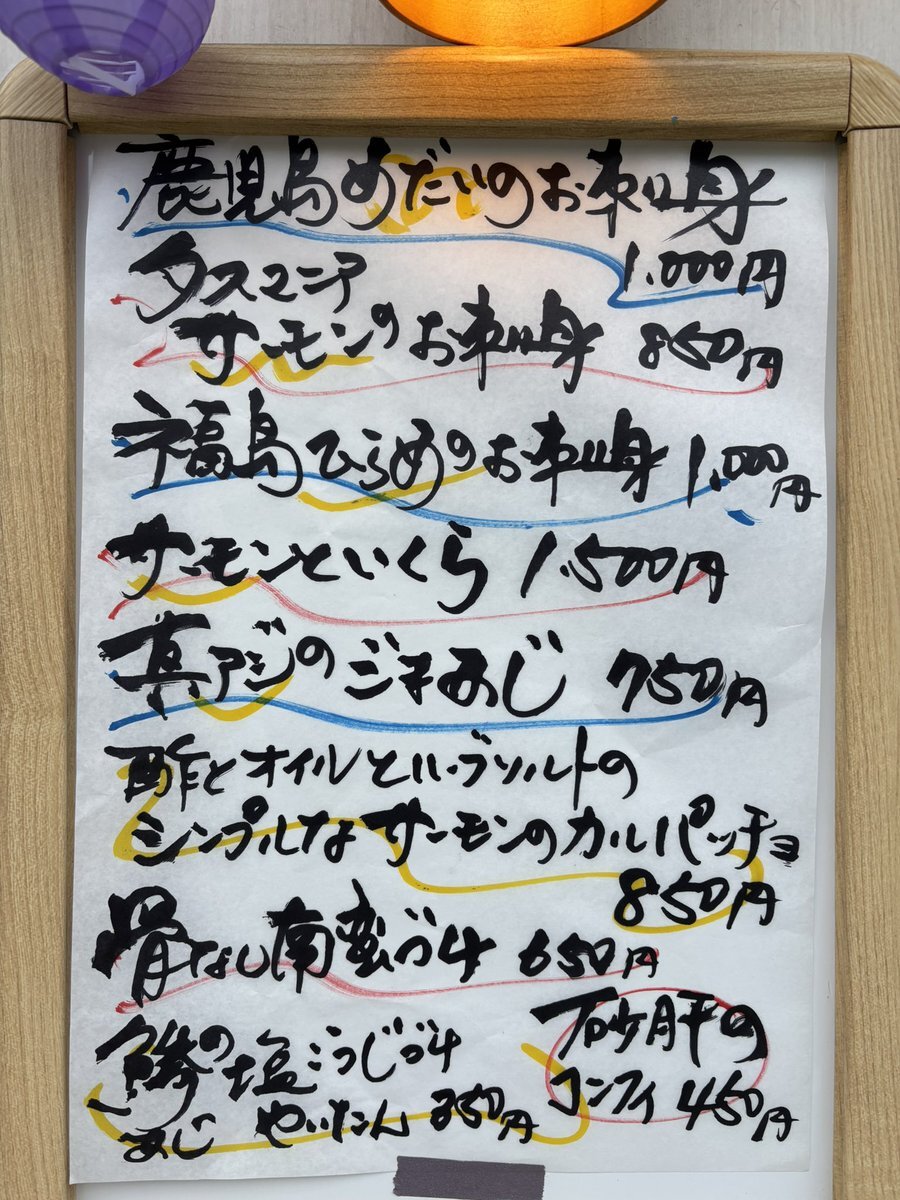 鹿児島めだいのお刺身
1.000円
タスマニア
サーモンのお刺身 850円
福島ひらめのお刺身 1.000円
サーモンといくら 1.500円
真アジのジネみじ 750円
酢とオイルとハーブソルトの
シンプルなサーモンのカルパッチョ
850円
骨なし南蛮づけ 650円
鯵の塩こうじづけ
あじ やいたん 850円
砂肝の
コンフィ 450円